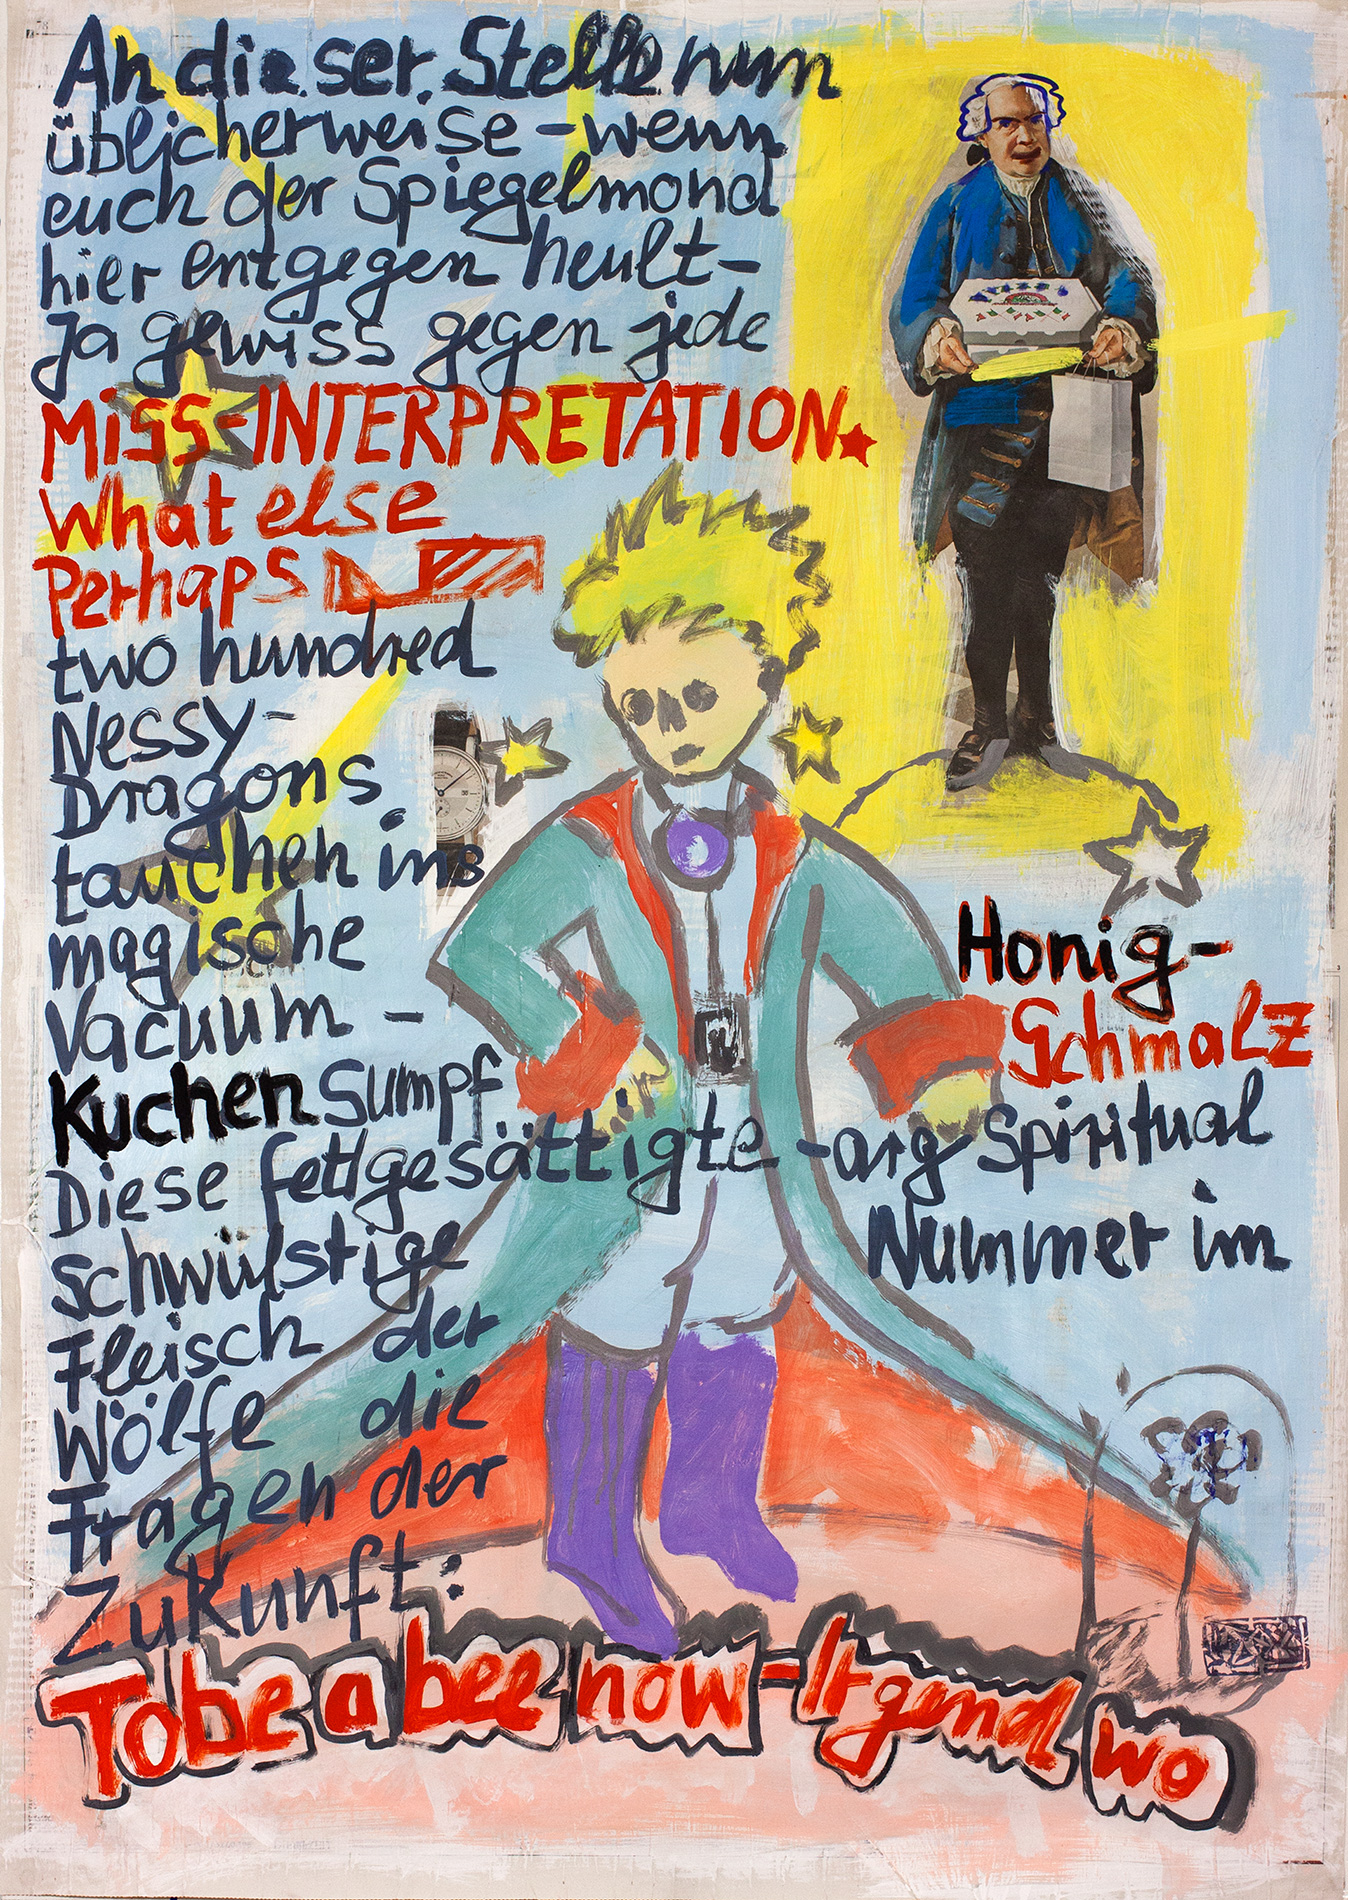 An dieser Stelle nun
üblicherweise - wenn
euch der Spiegelmond
hier entgegen heult -
Ja gewiss gegen jede
MiSS-INTERPRETATION.
What else
Perhaps
two hundred
Nessy-
Dragons
tauchen ins
magische
Vacuum -
Kuchen Sumpf
Honig-
Schmalz
Diese fettgesättigte - arg Spiritual
schwülstige Nummer im
Fleisch der
Wölfe die
Fragen der
Zukunft:
To be a bee now - Irgend wo